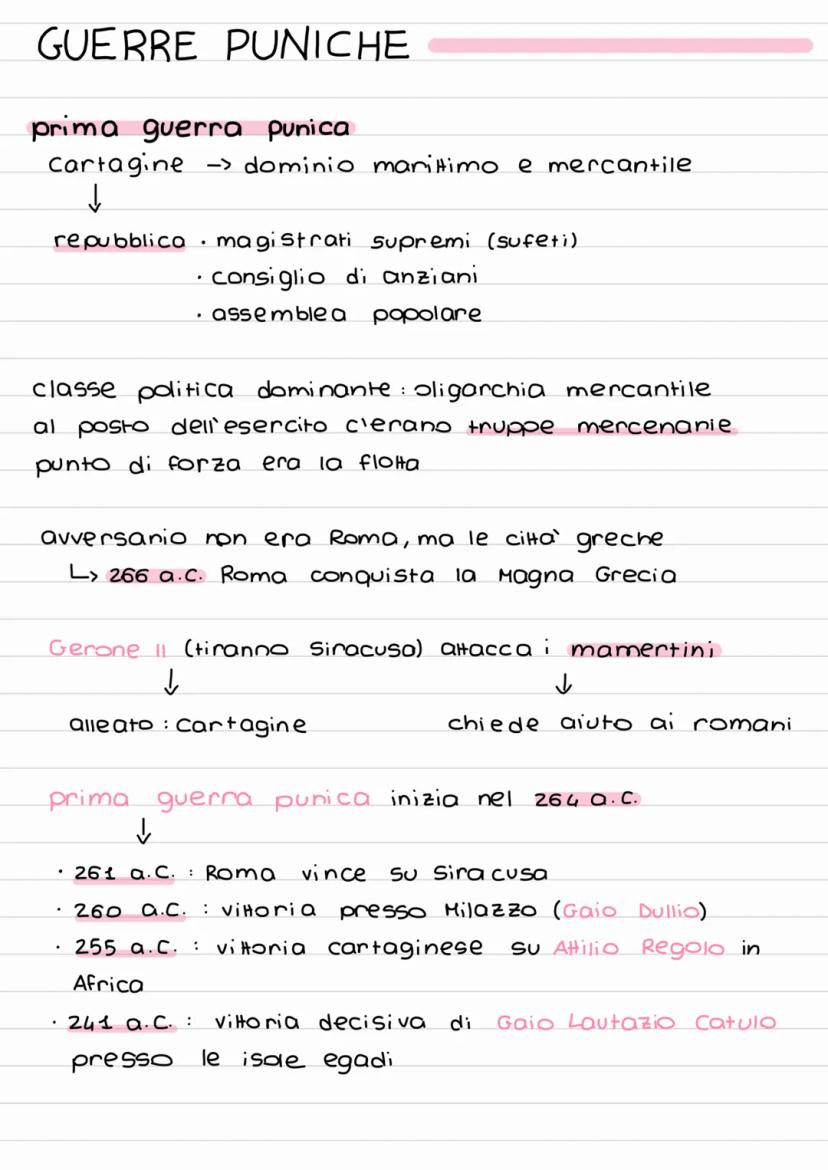 GUERRE PUNICHE
prima guerra punica
Cartagine -> dominio marittimo e mercantile
↓
repubblica · magistrati supremi (sufeti)
· consiglio di anziani
· assemblea popolare
classe politica dominante : oligarchia mercantile
al posto dell'esercito c'erano truppe mercenarie
punto di forza era la flotta
avversario non era Roma, ma le citta' greche
↳ 266 a.C. Roma conquista la Magna Grecia
Gerone II (tiranno Siracusa) attacca i mamertini
↓ ↓
alleato : Cartagine chiede aiuto ai romani
prima guerra punica inizia nel 264 a.C.
↓
· 261 a.C. : Roma vince su Siracusa
· 260 a.C. : vittoria presso Milazzo (Gaio Dullio)
· 255 a.C. : vittoria cartaginese su Attilio Regolo in
Africa
· 241 a.C. : vittoria decisiva di Gaio Lautazio Catulo
presso le isole egadi